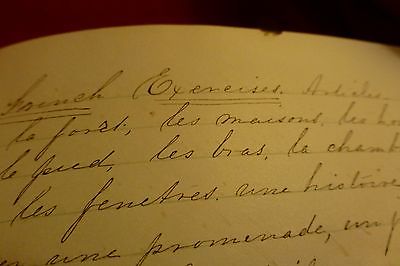 French Exercises. Articles
la forêt, les maisons, les ho
le pied, les bras, la chamb
les fenêtres, une histoire
une promenade, un